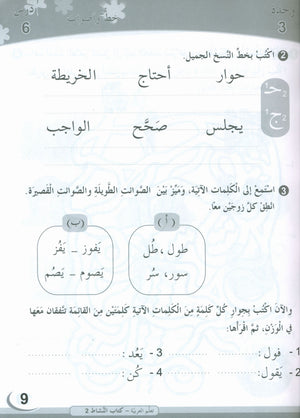 وحدة
3
خط وأصوات
درس
6
2 اكْتُبْ بخطِّ النَّسخِ الجميلِ.
حوار أحتاج الخريطة
يجلس صَحَّح الواجب
3 استَمِعْ إلى الكَلِماتِ الآتيةِ، ومَيِّزْ بَيْنَ الصوائتِ الطويلةِ والصوائتِ القَصيرَةِ.
انطِقْ كلَّ زوجَيْنِ معًا.
(أ)
طول، طُل
سور، سُر
(ب)
يَفوز – يَفُز
يَصوم – يَصُم
والآنَ اكْتُبْ بجِوارِ كُلِّ كَلِمةٍ مِنَ الكَلِماتِ الآتيةِ كَلِمَتَيْنِ مِنَ القائمةِ تتَّفقانِ مَعَها
في الوَزْنِ، ثمَّ اقْرأْها:
1- فول: 3 – يَعُد:
2- يَقول: 4 – كُن:
9
تعلّم العربيّة – كتاب النّشاط 2